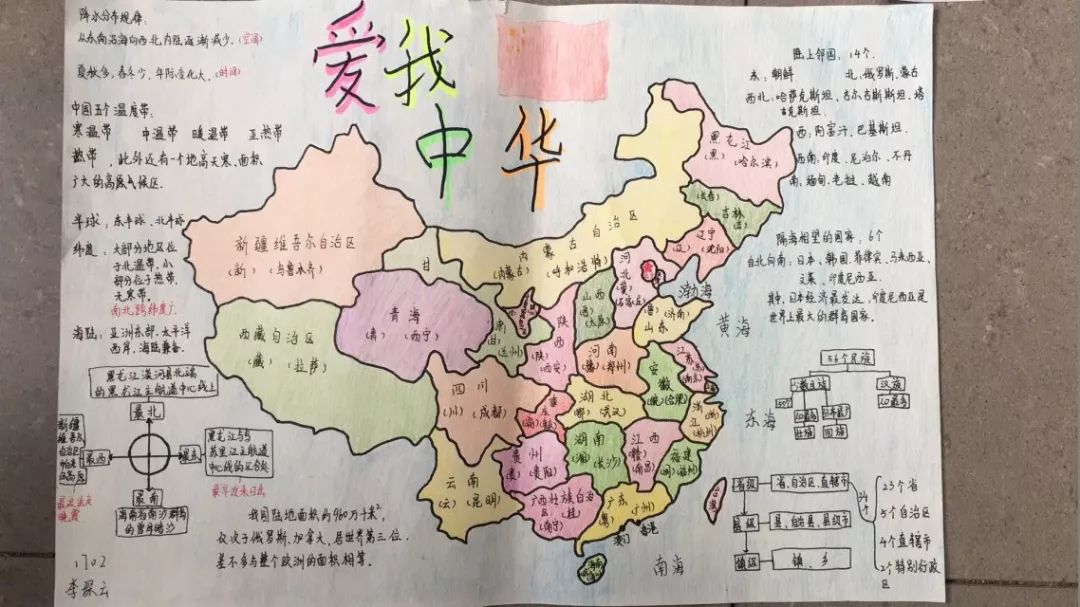 爱我中华
降水分布规律:
从东南沿海向西北内陆逐渐减少.(空间)
夏秋多,春冬少,年际变化大.(时间)
中国五个温度带:
寒温带 中温带 暖温带 亚热带
热带,此外还有一个地高天寒、面积
广大的高原气候区.
半球:东半球、北半球
纬度:大部分地区位
于北温带,小
部分位于热带.
无寒带.
南北跨纬度广
海陆:亚洲东部、太平洋
西岸、海陆兼备.
黑龙江漠河县北端
的黑龙江主航道中心线上
最北
最西
最东
最南
新疆
维吾尔
自治区
帕米
尔高原
黑龙江与乌
苏里江主航道
中心线的汇合处
最早迎来日出
晚霞
海南省南沙群岛
的曾母暗沙
我国陆地面积约960万千米²
仅次于俄罗斯、加拿大,居世界第三位.
差不多与整个欧洲的面积相等.
1702
李琛云
陆上邻国:14个.
东:朝鲜 北:俄罗斯、蒙古
西北:哈萨克斯坦、吉尔吉斯斯坦、塔
吉克斯坦
西:阿富汗、巴基斯坦.
西南:印度、尼泊尔、不丹
南:缅甸、老挝、越南
隔海相望的国家:6个
自北向南:日本、韩国、菲律宾、马来西亚、
文莱、印度尼西亚.
其中,日本经济最发达,印度尼西亚是
世界上最大的群岛国家.
56个民族
少数民族
汉族
55个
壮族
回族
省级
省、自治区、直辖市
县级
县、自治县、县级市
镇级
镇、乡
34个
23个省
5个自治区
4个直辖市
2个特别行政
区
黑龙江
(黑) (哈尔滨)
吉林
(吉)
(长春)
辽宁
(辽) (沈阳)
内蒙古自治区
(内蒙古) (呼和浩特)
新疆维吾尔自治区
(新) (乌鲁木齐)
甘
肃
(兰州)
青海
(青) (西宁)
西藏自治区
(藏) (拉萨)
河北
(冀)
(石家庄)
山西
(太原)
山东
(鲁) (济南)
陕西
(陕)
(西安)
河南
(豫) (郑州)
江苏
安徽
(皖) (合肥)
四川
(川) (成都)
重庆
湖北
(鄂) (武汉)
浙江
(浙)
(杭州)
贵州
(贵) (贵阳)
湖南
(湘) (长沙)
江西
(赣)
(南昌)
福建
(闽) (福州)
云南
(云) (昆明)
广西壮族自治区
(桂)
(南宁)
广东
(粤) (广州)
澳门
香港
渤海
黄海
东海
南海